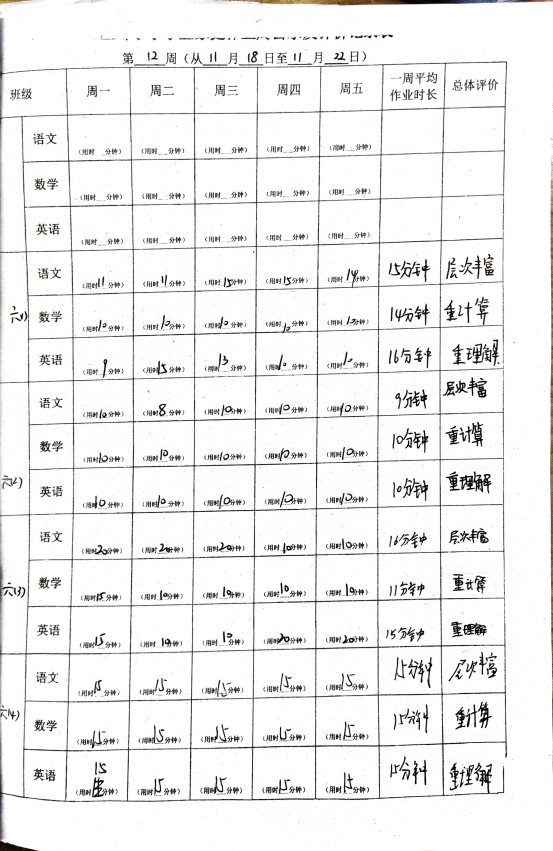 第 12 周（从 11 月 18 日至 11 月 22 日）
班级 周一 周二 周三 周四 周五 一周平均作业时长 总体评价
语文 （用时 分钟） （用时 分钟） （用时 分钟） （用时 分钟） （用时 分钟）
数学 （用时 分钟） （用时 分钟） （用时 分钟） （用时 分钟） （用时 分钟）
英语 （用时 分钟） （用时 分钟） （用时 分钟） （用时 分钟） （用时 分钟）
六(1) 语文 （用时11分钟） （用时11分钟） （用时15分钟） （用时15分钟） （用时14分钟） 15分钟 层次丰富
数学 （用时10分钟） （用时10分钟） （用时10分钟） （用时10分钟） （用时10分钟） 14分钟 重计算
英语 （用时9分钟） （用时15分钟） （用时13分钟） （用时10分钟） （用时10分钟） 16分钟 重理解
六(2) 语文 （用时10分钟） （用时8分钟） （用时10分钟） （用时10分钟） （用时10分钟） 9分钟 层次丰富
数学 （用时10分钟） （用时10分钟） （用时10分钟） （用时10分钟） （用时10分钟） 10分钟 重计算
英语 （用时10分钟） （用时10分钟） （用时10分钟） （用时10分钟） （用时10分钟） 10分钟 重理解
六(3) 语文 （用时20分钟） （用时20分钟） （用时20分钟） （用时10分钟） （用时10分钟） 16分钟 层次丰富
数学 （用时15分钟） （用时10分钟） （用时10分钟） （用时10分钟） （用时10分钟） 11分钟 重计算
英语 （用时15分钟） （用时10分钟） （用时10分钟） （用时20分钟） （用时20分钟） 15分钟 重理解
六(4) 语文 （用时15分钟） （用时15分钟） （用时15分钟） （用时15分钟） （用时15分钟） 15分钟 层次丰富
数学 （用时15分钟） （用时15分钟） （用时15分钟） （用时15分钟） （用时15分钟） 15分钟 重计算
英语 （用时15分钟） （用时15分钟） （用时15分钟） （用时15分钟） （用时15分钟） 15分钟 重理解